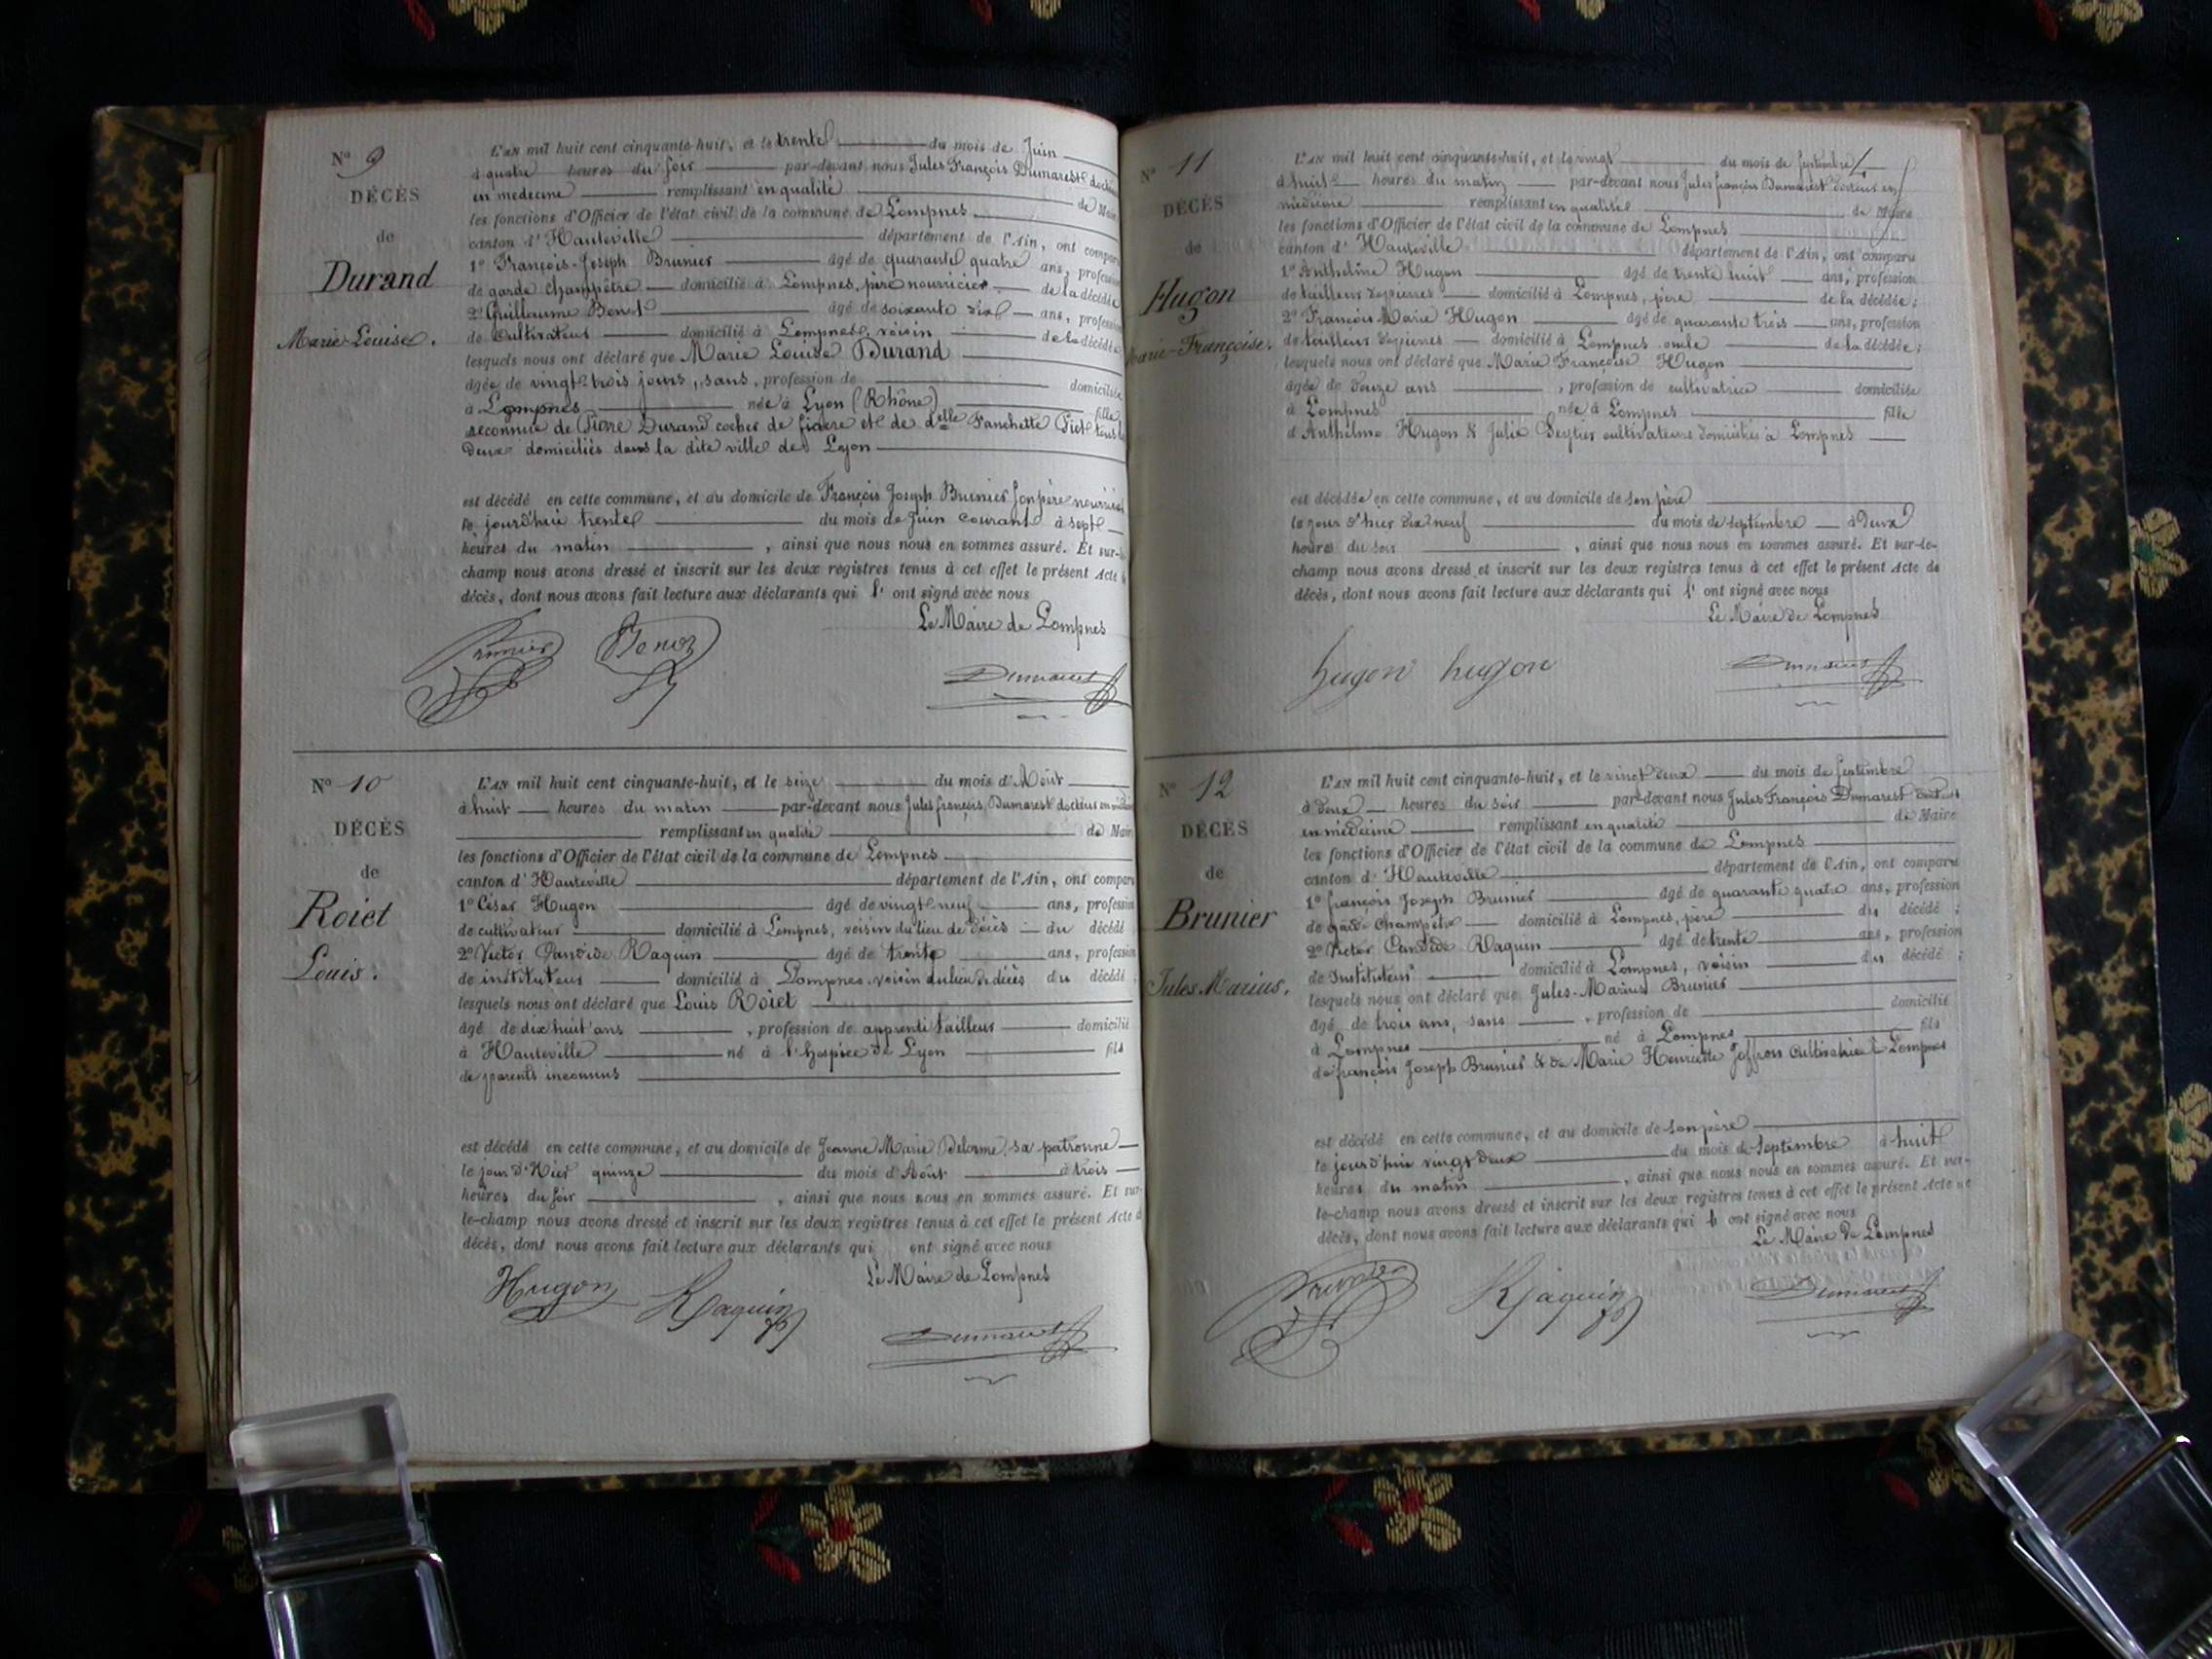 N° 9
DÉCÈS
de
Durand
Marie-Louise.
L'AN mil huit cent cinquante-huit, et le trente du mois de Juin
à quatre heures du soir par-devant nous Jules François Dumarest docteur
en médecine remplissant en qualité de Maire
les fonctions d'Officier de l'état civil de la commune de Lompnes
canton d'Hauteville département de l'Ain, ont comparu
1° François-Joseph Brunier âgé de quarante quatre ans, profession
de garde champêtre domicilié à Lompnes, père nourricier de la décédée
2° Guillaume Benoz âgé de soixante dix ans, profession
de Cultivateur domicilié à Lompnes, voisin de la décédée
lesquels nous ont déclaré que Marie Louise Durand
âgée de vingt-trois jours, sans, profession de domiciliée
à Lompnes née à Lyon (Rhône) fille
reconnue de Pierre Durand cocher de fiacre et de delle Fanchette tous les
deux domiciliés dans la dite ville de Lyon
est décédé en cette commune, et au domicile de François Joseph Brunier son père nourricier
le jourd'hui trente du mois de Juin courant à sept
heures du matin, ainsi que nous nous en sommes assuré. Et sur-le-
champ nous avons dressé et inscrit sur les deux registres tenus à cet effet le présent Acte de
décès, dont nous avons fait lecture aux déclarants qui l' ont signé avec nous
Le Maire de Lompnes
Brunier Benoz
Dumarest
N° 10
DÉCÈS
de
Roiet
Louis.
L'AN mil huit cent cinquante-huit, et le seize du mois d'Août
à huit heures du matin par-devant nous Jules françois Dumarest docteur en médecine
remplissant en qualité de Maire
les fonctions d'Officier de l'état civil de la commune de Lompnes
canton d'Hauteville département de l'Ain, ont comparu
1° César Hugon âgé de vingt neuf ans, profession
de cultivateur domicilié à Lompnes, voisin du lieu de décès du décédé
2° Victor Candide Raquin âgé de trente ans, profession
de instituteur domicilié à Lompnes, voisin du lieu de décès du décédé ;
lesquels nous ont déclaré que Louis Roiet
âgé de dix huit ans, profession de apprenti tailleur domicilié
à Hauteville né à l'hospice de Lyon fils
de parents inconnus
est décédé en cette commune, et au domicile de Jeanne Marie Delorme, sa patronne
le jour d'Hier quinze du mois d'Août à trois
heures du soir, ainsi que nous nous en sommes assuré. Et sur-
le-champ nous avons dressé et inscrit sur les deux registres tenus à cet effet le présent Acte de
décès, dont nous avons fait lecture aux déclarants qui ont signé avec nous
Le Maire de Lompnes
Hugon Raquin
Dumarest
N° 11
DÉCÈS
de
Hugon
Marie-Françoise.
L'AN mil huit cent cinquante-huit, et le vingt du mois de Septembre
à huit heures du matin par-devant nous Jules françois Dumarest docteur en
médecine remplissant en qualité de Maire
les fonctions d'Officier de l'état civil de la commune de Lompnes
canton d'Hauteville département de l'Ain, ont comparu
1° Anthelme Hugon âgé de trente huit ans, profession
de tailleur de pierres domicilié à Lompnes, père de la décédée ;
2° François Marie Hugon âgé de quarante trois ans, profession
de tailleur de pierres domicilié à Lompnes oncle de la décédée ;
lesquels nous ont déclaré que Marie Françoise Hugon
âgée de douze ans, profession de cultivatrice domiciliée
à Lompnes née à Lompnes fille
d'Anthelme Hugon & Julie Seytier cultivateurs domiciliés à Lompnes
est décédée en cette commune, et au domicile de son père
le jour d'hier dix neuf du mois de septembre à deux
heures du soir, ainsi que nous nous en sommes assuré. Et sur-le-
champ nous avons dressé et inscrit sur les deux registres tenus à cet effet le présent Acte de
décès, dont nous avons fait lecture aux déclarants qui l' ont signé avec nous
Le Maire de Lompnes
hugon hugon
Dumarest
N° 12
DÉCÈS
de
Brunier
Jules Marius.
L'AN mil huit cent cinquante-huit, et le vingt deux du mois de Septembre
à deux heures du soir par-devant nous Jules François Dumarest docteur
en médecine remplissant en qualité de Maire
les fonctions d'Officier de l'état civil de la commune de Lompnes
canton d'Hauteville département de l'Ain, ont comparu
1° françois Joseph Brunier âgé de quarante quatre ans, profession
de garde Champêtre domicilié à Lompnes, père du décédé ;
2° Victor Candide Raquin âgé de trente ans, profession
de Instituteur domicilié à Lompnes, voisin du décédé ;
lesquels nous ont déclaré que Jules-Marius Brunier
âgé de trois ans, sans, profession de domicilié
à Lompnes né à Lompnes fils
de françois Joseph Brunier & de Marie Henriette Joffron à Lompnes
est décédé en cette commune, et au domicile de son père
le jourd'hui vingt deux du mois de Septembre à huit
heures du matin, ainsi que nous nous en sommes assuré. Et sur-
le-champ nous avons dressé et inscrit sur les deux registres tenus à cet effet le présent Acte de
décès, dont nous avons fait lecture aux déclarants qui l' ont signé avec nous
Le Maire de Lompnes
Brunier Raquin
Dumarest